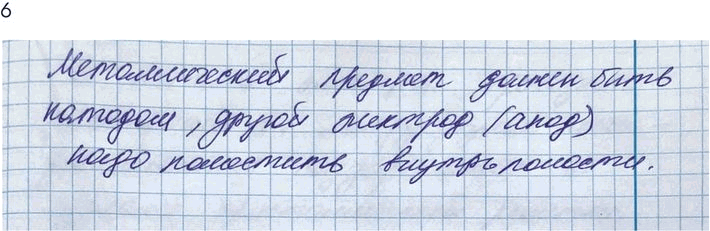 6
Металлический предмет должен быть
катодом, другой электрод (анод)
надо поместить внутрь полости.